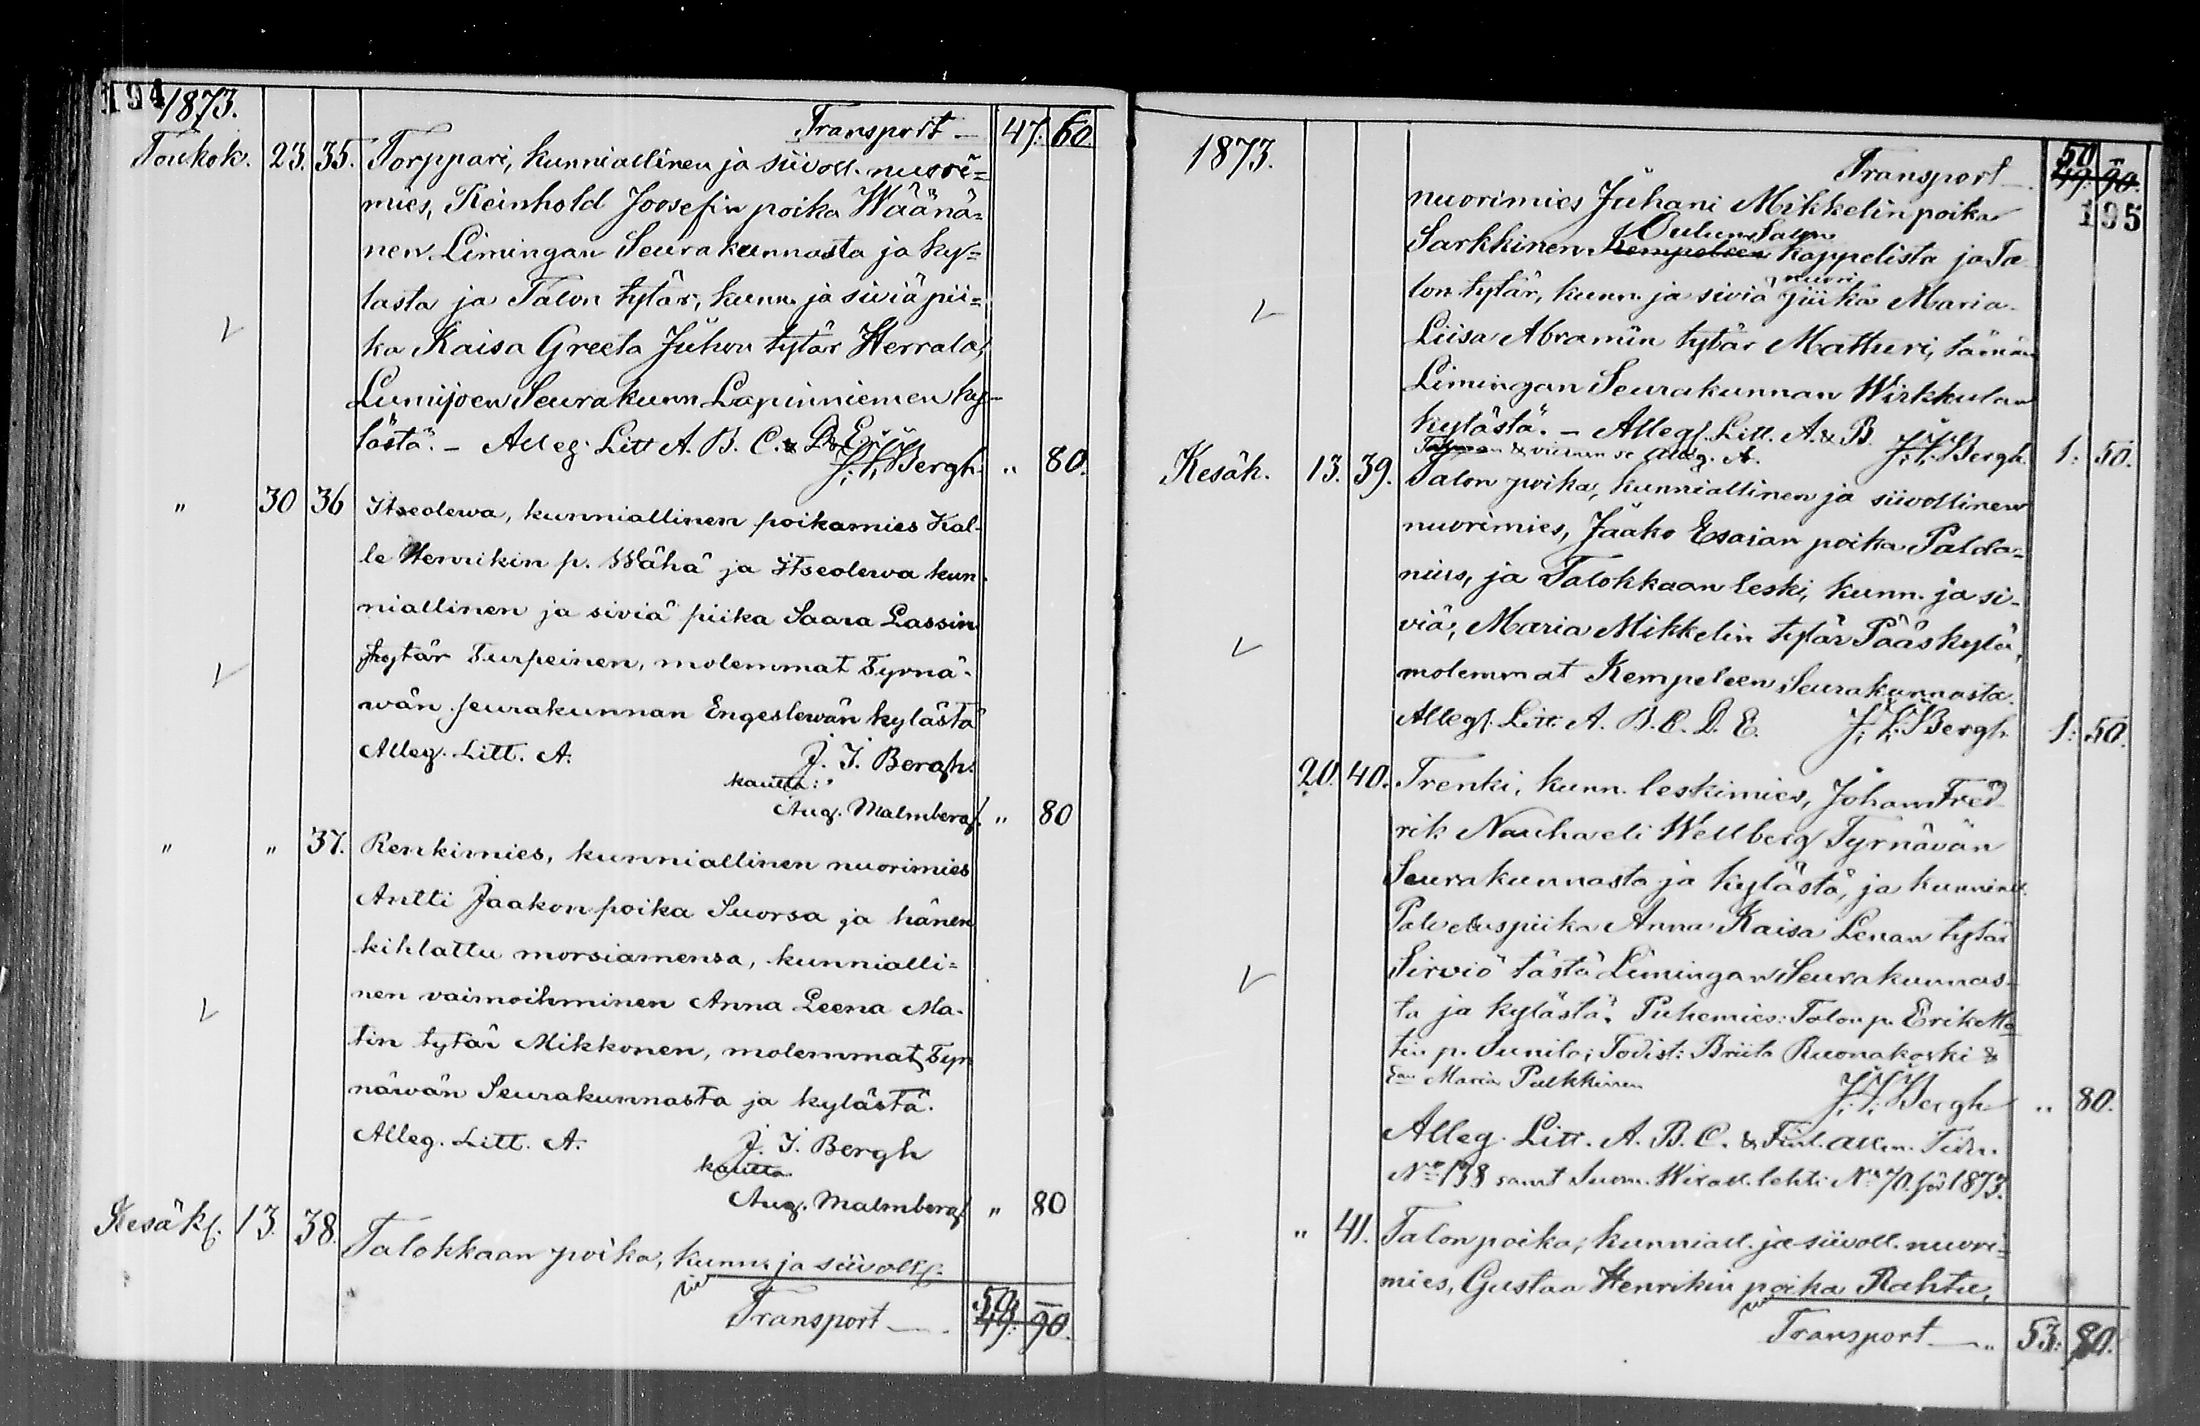 194 1873.
Transport — 47: 60
Toukok. 23. 35. Torppari, kunniallinen ja siivoll. nuori=
mies, Reinhold Joosefin poika Wäänä=
nen Limingan Seurakunnasta ja ky=
lasta ja Talon tytär, kunn. ja siviä pii=
ka Kaisa Greeta Juhon tytär Herrala,
Lumijoen Seurakunn Lapinniemen ky-
lästä. – Alleg. Litt A. B. C. & D & E.
J. I. Bergh. " 80.
" 30 36 Itseolewa, kunniallinen poikamies Kal-
le Henrikin p. Wähä ja Itseolewa kun-
niallinen ja siviä piika Saara Lassin
tytär Turpeinen, molemmat Tyrnä-
wän seurakunnan Engeslewän kylästä
Alleg. Litt. A. J. I. Bergh.
kautta:
Aug. Malmberg. " 80
" " 37. Renkimies, kunniallinen nuorimies
Antti Jaakon poika Suorsa ja hänen
kihlattu morsiamensa, kunnialli=
nen vaimoihminen Anna Leena Ma-
tin tytär Mikkonen, molemmat Tyr
näwän Seurakunnasta ja kylästä.
Alleg. Litt. A. J. I. Bergh
kautta
Aug. Malmberg " 80
Kesäk. 13. 38. Talokkaan poika, kunn. ja siivoll.
Transport — 50, –
49: 90.
1873.
Transport — 50 –
49. 90.
195
nuorimies Juhani Mikkelin poika
Oulun Salon
Sarkkinen Kempeleen kappelista ja Ta
nuori
lon tytär, kunn. ja siviä piika Maria
Liisa Abramin tytär Matturi, tämän
Limingan Seurakunnan Wirkkulan
kylästä. – Alleg. Litt. A. & B. J. I. Bergh. 1: 50.
Alleg. A.
Kesäk. 13. 39. Talon poika, kunniallinen ja siivollinen
nuorimies, Jaako Esaian poika Palda=
nius, ja Talokkaan leski, kunn. ja si-
viä, Maria Mikkelin tytär Pääskylä,
molemmat Kempeleen Seurakunnasta.
Alleg. Litt. A. B. C. D. E. J. I. Bergh 1: 50.
20. 40. Trenki, kunn. leskimies, Johan Fred
rik Nauhaeli Wellberg Tyrnävän
Seurakunnasta ja kylästä, ja kunniall.
Palveluspiika Anna Kaisa Lenan tytär
Sirviö tästä Limingan Seurakunnas-
ta ja kylästä. Puhemies: Talon p. Erik Ma
tin p. Junila; Todist: Briita Ruonakoski &
Maria Pulkkinen
J. I. Bergh " 80.
Alleg. Litt. A. B. C. & Finl. Allm. Tidn.
No 138 samt Suom. Wirall. lehti No 70. för 1873.
" 41. Talonpoika, kunniall. ja siivoll. nuori=
mies, Gustaa Henrikin poika Rahtu,
Transport — " 53: 80.